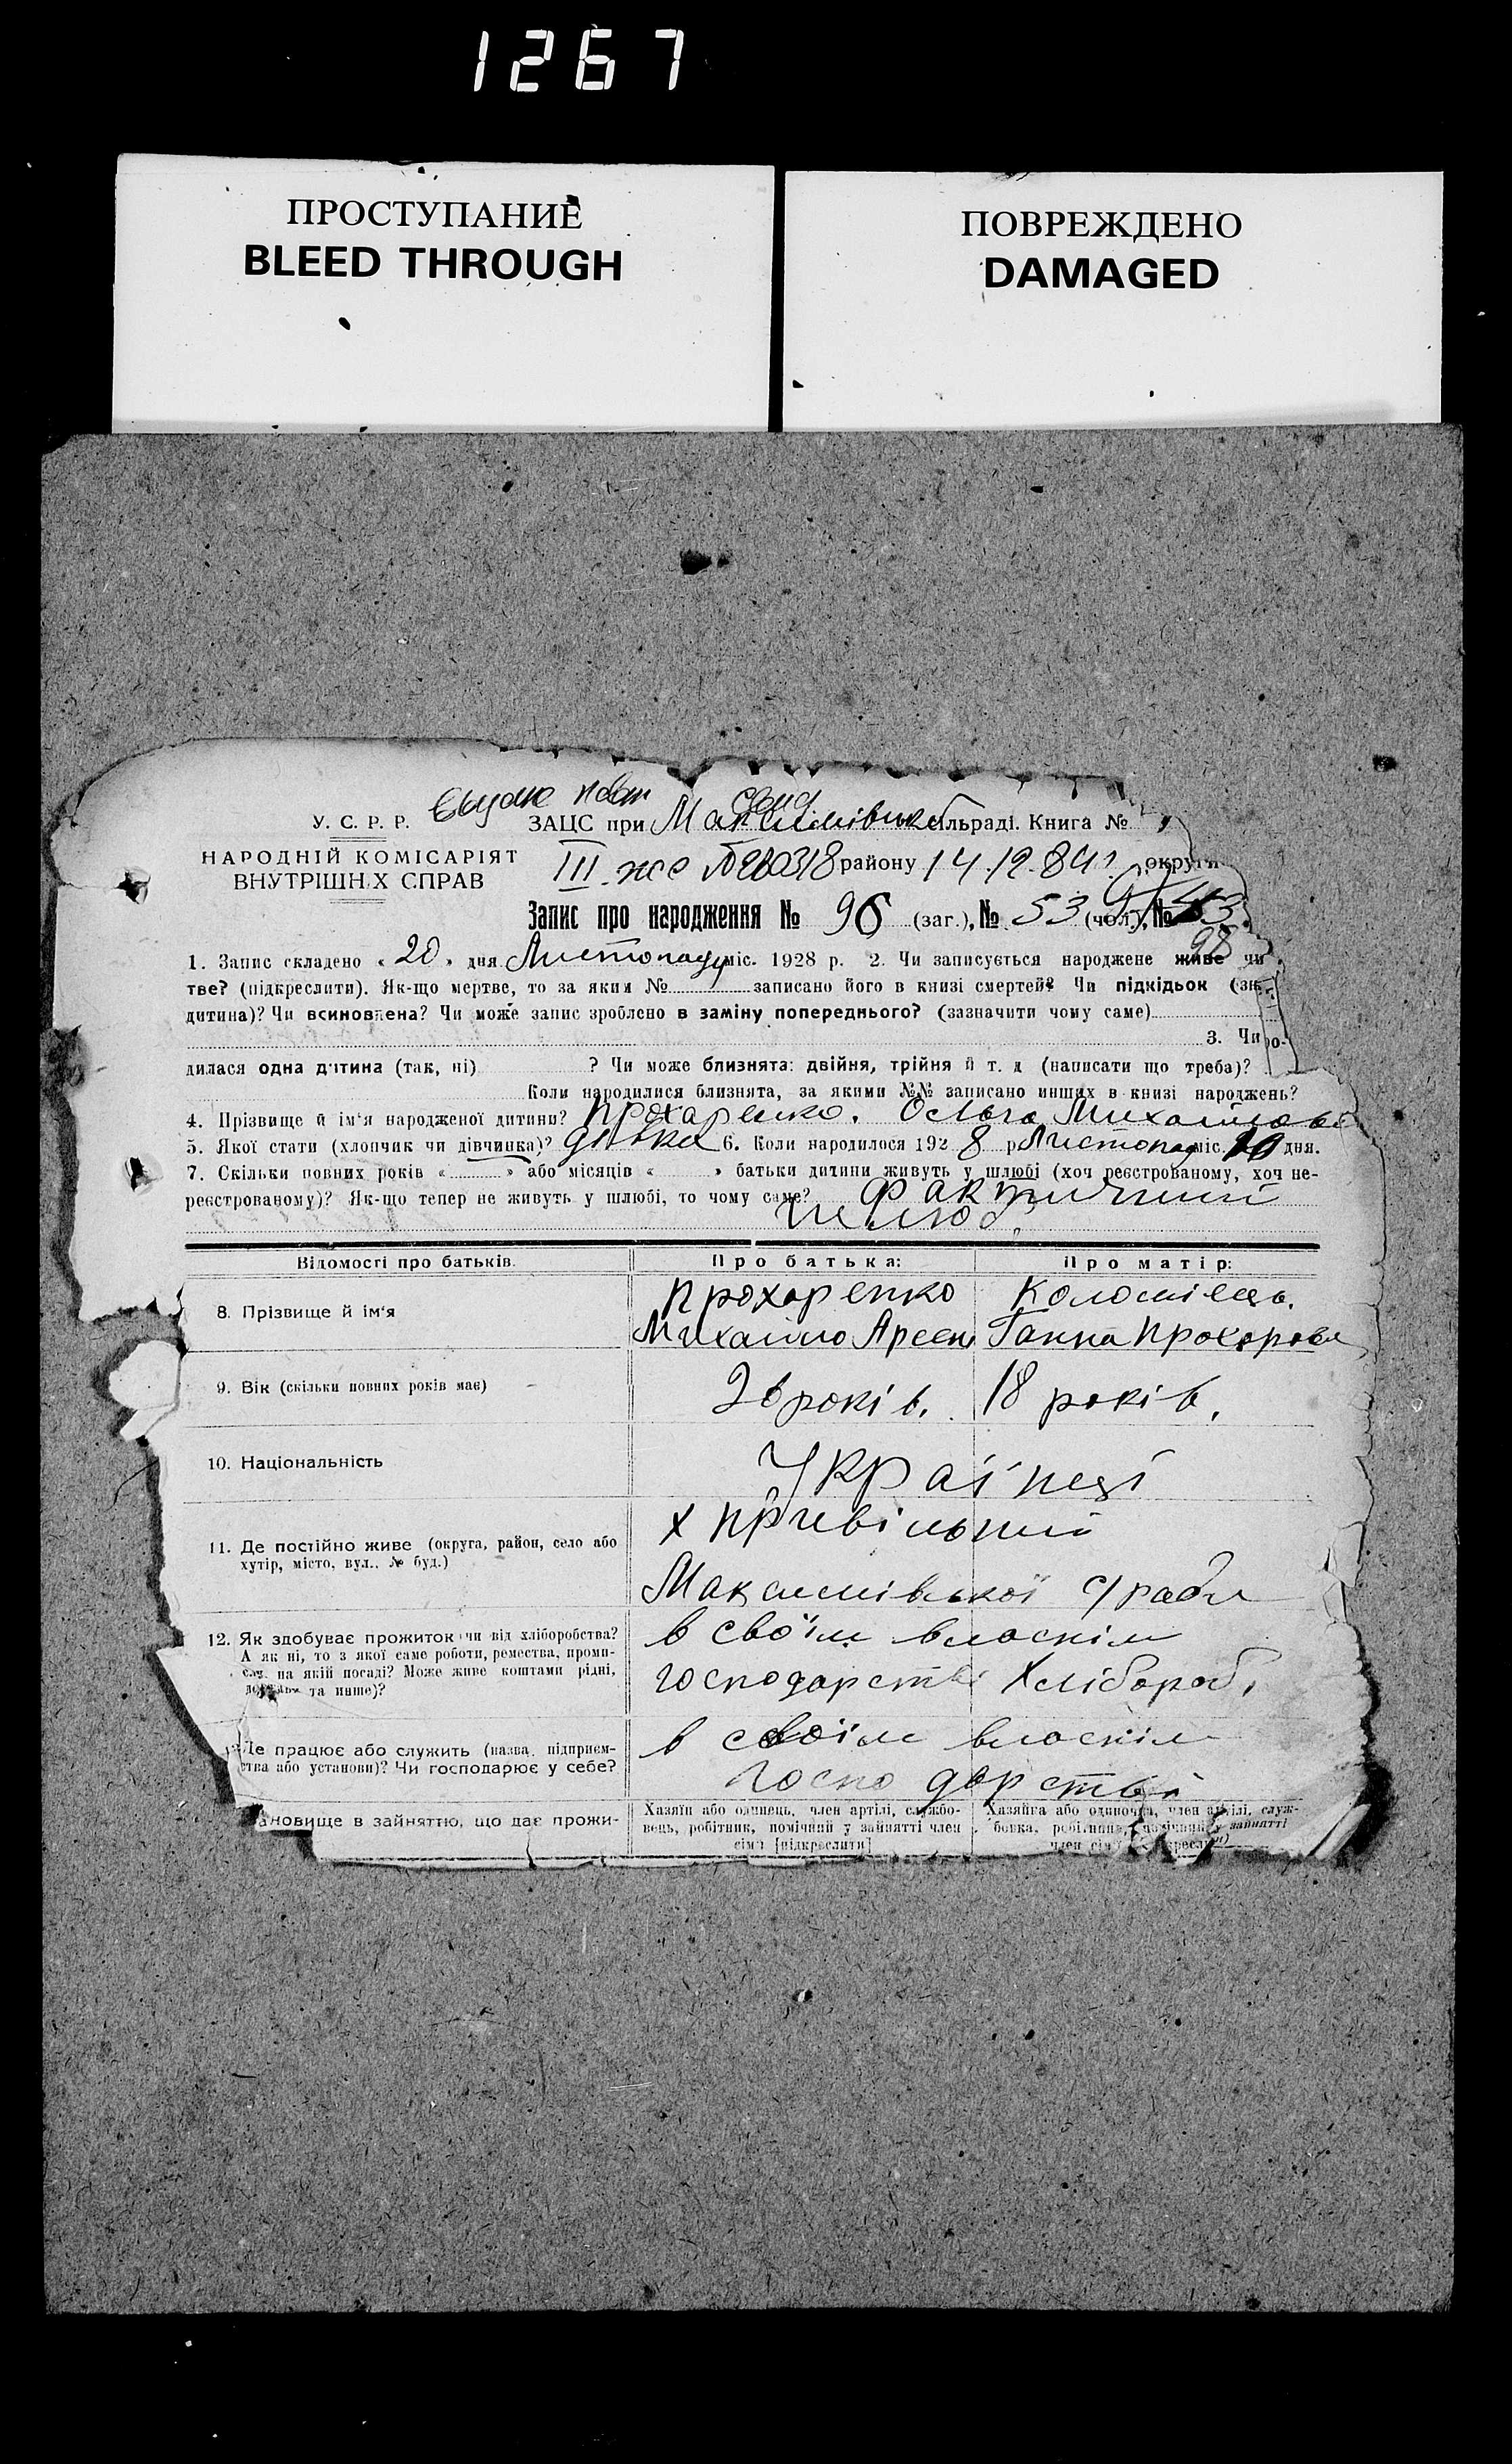 1267
ПРОСТУПАНИЕ
BLEED THROUGH
ПОВРЕЖДЕНО
DAMAGED
У. С. Р. Р.
НАРОДНІЙ КОМІСАРІЯТ
ВНУТРІШН.Х СПРАВ
ЗАЦС при Максимівській сільраді. Книга №
III-жс № району 14.12.84 г. округи
Запис про народження № 96 (заг.), № 53 (чол.), № 43
98
1. Запис складено « 20 » дня Листопаду міс. 1928 р. 2. Чи записується народжене живе чи
тве? (підкреслити). Як-що мертве, то за яким № записано його в книзі смертей? Чи підкідьок (зн
дитина)? Чи всиновлена? Чи може запис зроблено в заміну попереднього? (зазначити чому саме)
3. Чи ро-
дилася одна дитина (так, ні) ? Чи може близнята: двійня, трійня й т. д (написати що треба)?
Коли народилися близнята, за якими №№ записано инших в книзі народжень?
4. Прізвище й ім'я народженої дитини? Прохаренко. Ольга Михайлові
5. Якої стати (хлопчик чи дівчинка)? дівка 6. Коли народилося 192 8 р Листопад міс. дня.
7. Скільки повних років « » або місяців « » батьки дитини живуть у шлюбі (хоч реєстрованому, хоч не-
реєстрованому)? Як-що тепер не живуть у шлюбі, то чому саме? Фактичний
шлюб.
Відомості про батьків. Про батька: Про матір:
8. Прізвище й ім'я Прохаренко Коломієць.
Михайло Арсен Ганна Прохоровн
9. Вік (скільки повних років має) 26 років. 18 років.
10. Національність Українці
11. Де постійно живе (округа, район, село або
хутір, місто, вул., № буд.)
х Привільний
Максимівської с/ради
12. Як здобуває прожиток чи від хліборобства?
А як ні, то з якої саме роботи, ремества, проми-
слу, на якій посаді? Може живе коштами рідні,
та инше)?
в своїм власнім
господарстві Хлібороб.
Де працює або служить (назва підприєм-
ства або установи)? Чи господарює у себе?
в своїм власнім
господарстві
ановище в зайняттю, що дає прожи-
Хазяїн або одинець, член артілі, службо-
вець, робітник, помічний у зайнятті член
сім'ї [підкреслити]
Хазяйка або одиночка, член артілі, служ-
бовка, робітниця, помічний у зайнятті
член сім'ї